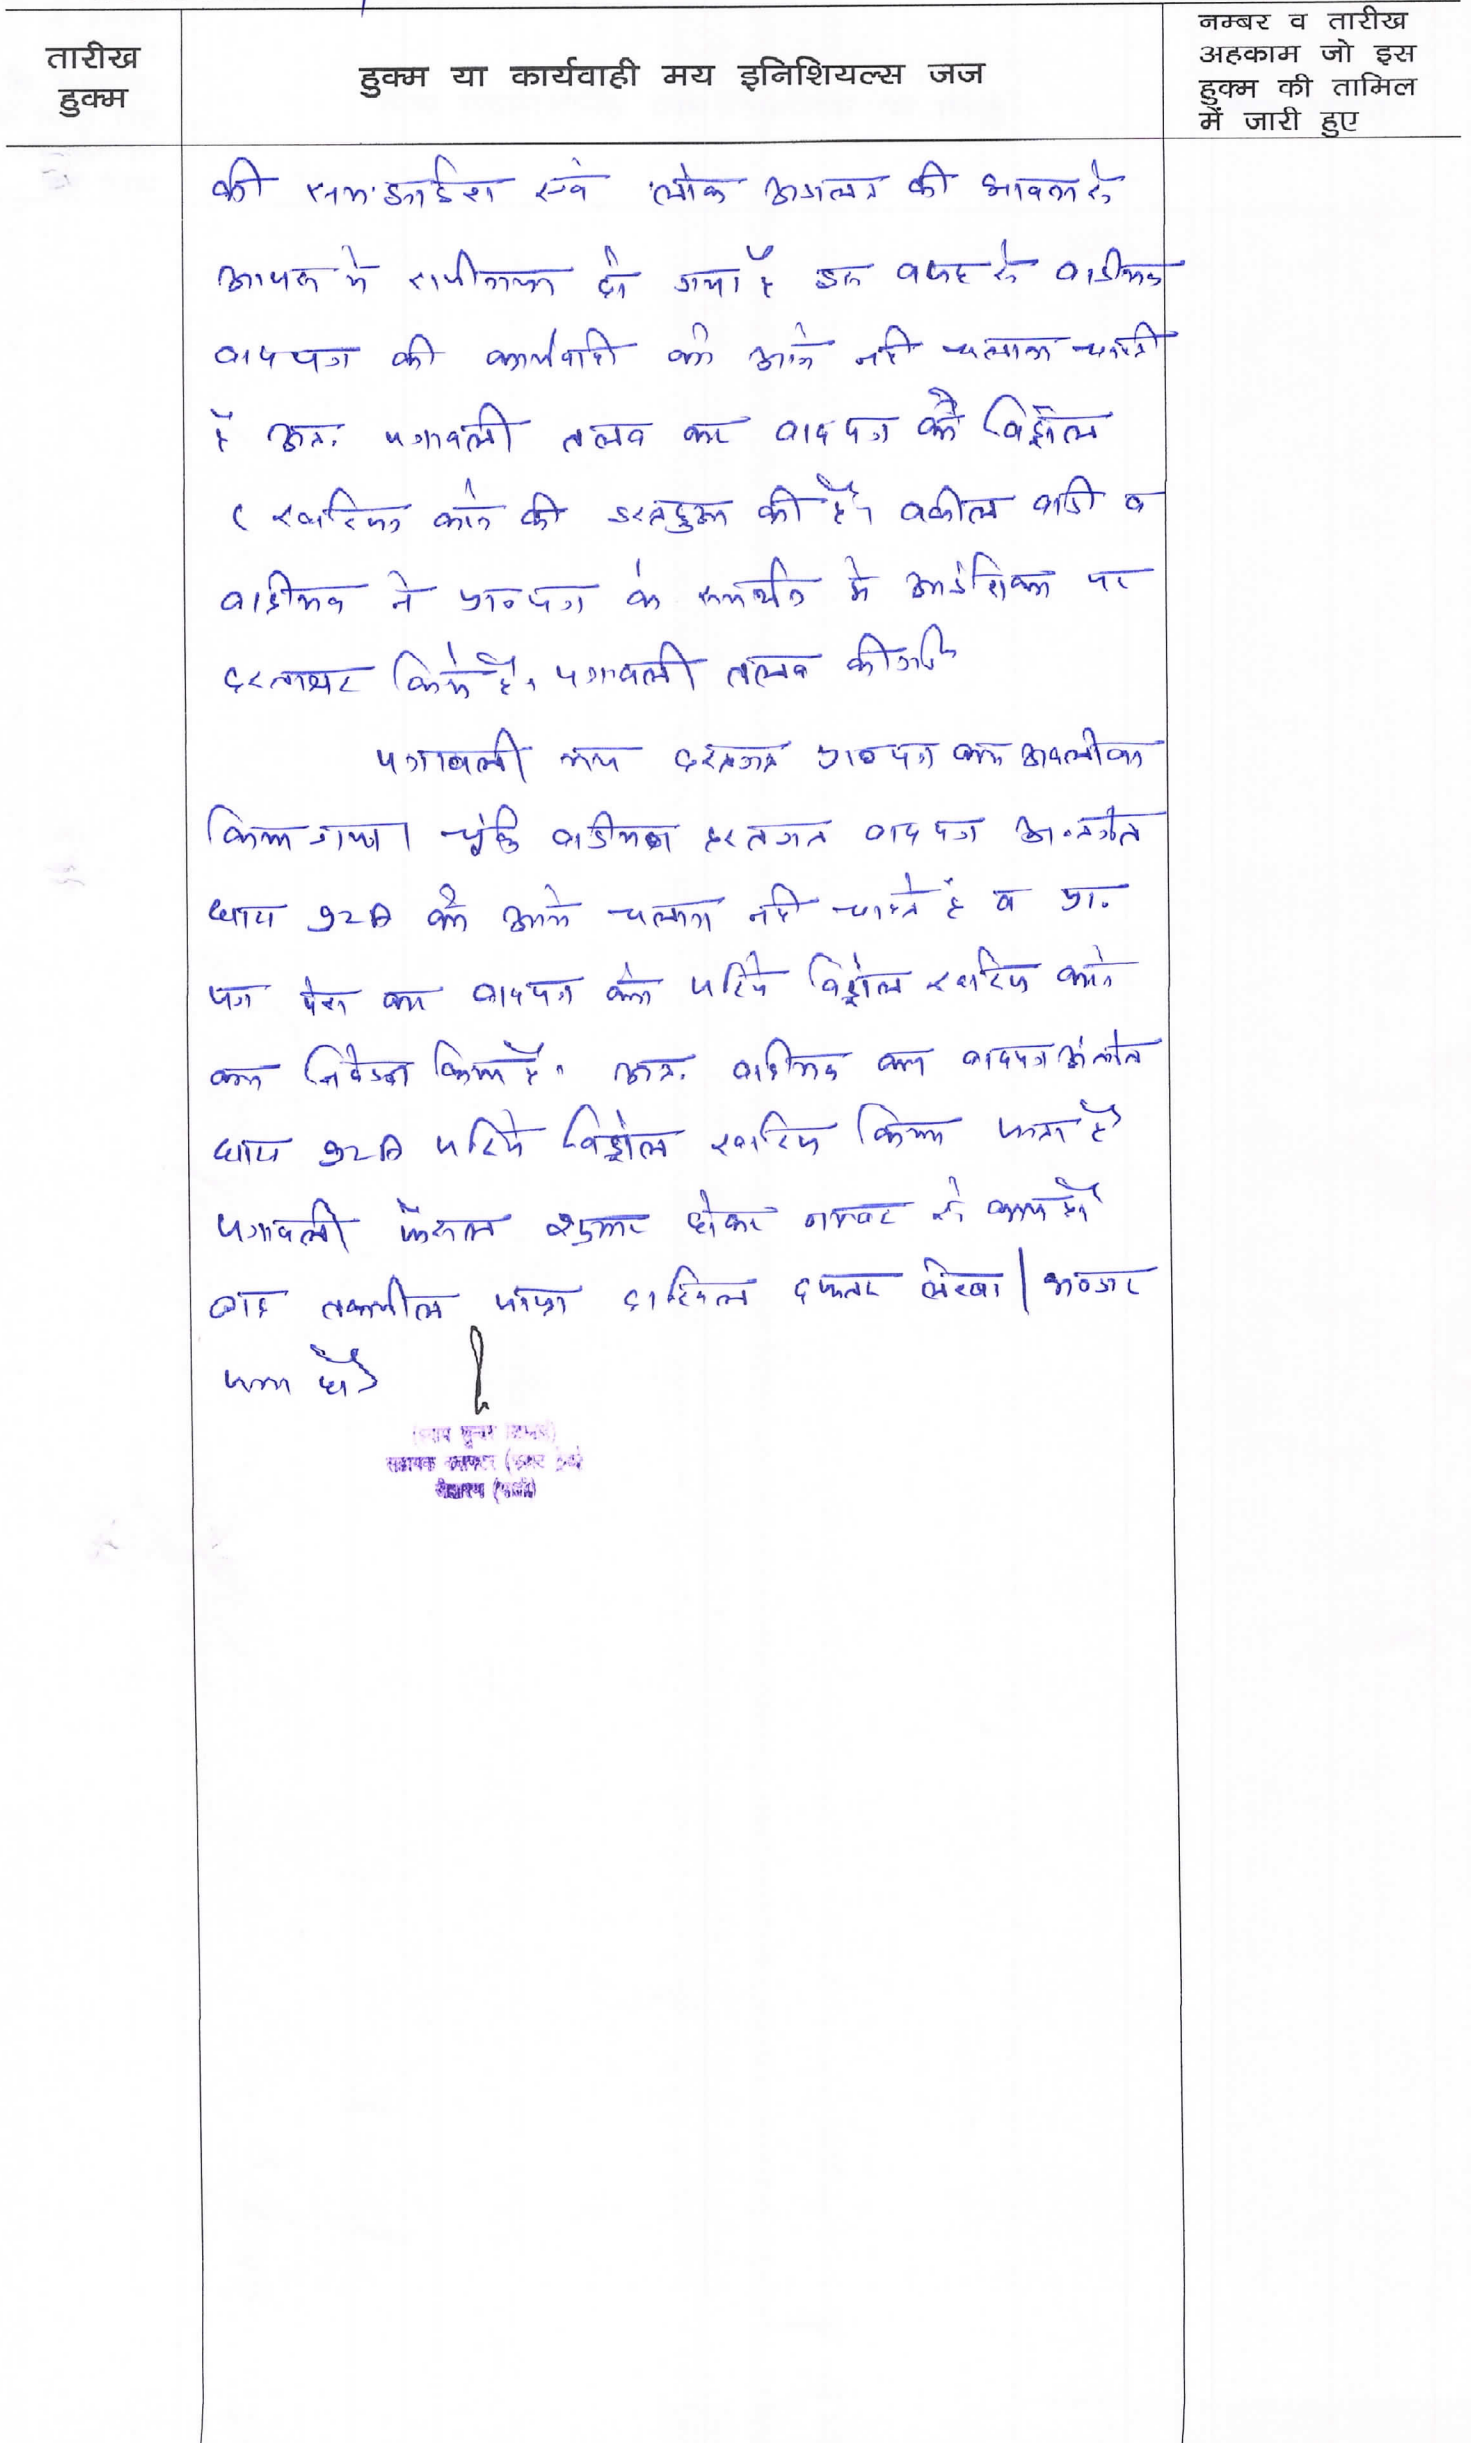 तारीख
हुक्म
हुक्म या कार्यवाही मय इनिशियल्स जज
नम्बर व तारीख
अहकाम जो इस
हुक्म की तामिल
में जारी हुए
की समझाईश एवं लोक अदालत की भावना से
आपस में राजीनामा हो गया है इस वजह से वादीगण
वादपत्र की कार्यवाही को आगे नही चलाना चाहते
है अतः पत्रावली तलब कर वादपत्र को विड्रोल
खारिज करने की इस्तदुआ की है। वकील वादी व
वादीगण ने प्रा० पत्र के समर्थन मे आदेशिका पर
हस्ताक्षर किये है। पत्रावली तलब की गई
पत्रावली मय हस्तगत प्रा० पत्र का अवलोकन
किया गया। चूंकि वादीगण हस्तगत वादपत्र अन्तर्गत
धारा 92A को आगे चलाना नही चाहते है व प्रा.
पत्र पेश कर वादपत्र को जरिये विड्रोल खारिज करने
का निवेदन किया है। अतः वादीगण का वादपत्र अंतर्गत
धारा 92A जरिये विड्रोल खारिज किया जाता है
पत्रावली फैसल शुमार होकर नम्बर से कम हो
बाद तकमील जाप्ता दाखिल दफ्तर लेखा / भण्डार
जमा हो
सहायक कलक्टर